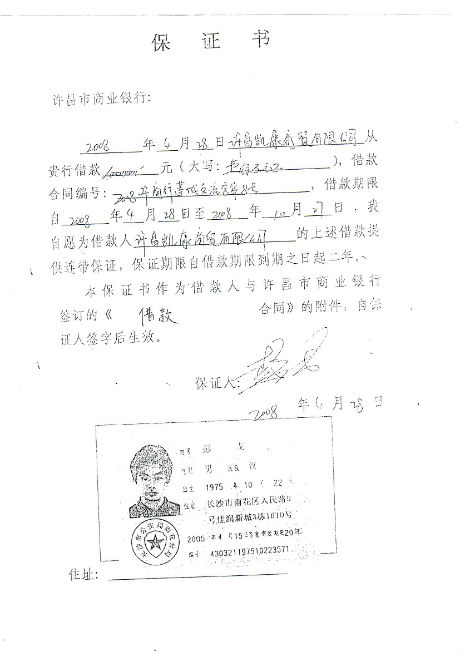 保 证 书
许昌市商业银行:
2008 年 4 月 28 日许昌凯康商贸有限公司从
贵行借款 元(大写: ),借款
合同编号: ,借款期限
自 2008 年 4 月 28 日至 2008 年 10 月 27 日,我
自愿为借款人许昌凯康商贸有限公司的上述借款提
供连带保证,保证期限自借款期限到期之日起二年。
本保证书作为借款人与许昌市商业银行
签订的《 借款 合同》的附件,自保
证人签字后生效。
保证人:
2008 年 4 月 28 日
姓名
性别 男 民族 汉
出生 1975 年 10 月 22 日
住址 长沙市雨花区人民路9
号佳润新城3栋1610号
2005 年 4 月 15 日签发有效期限20年
编号 430321197510223571
住址: